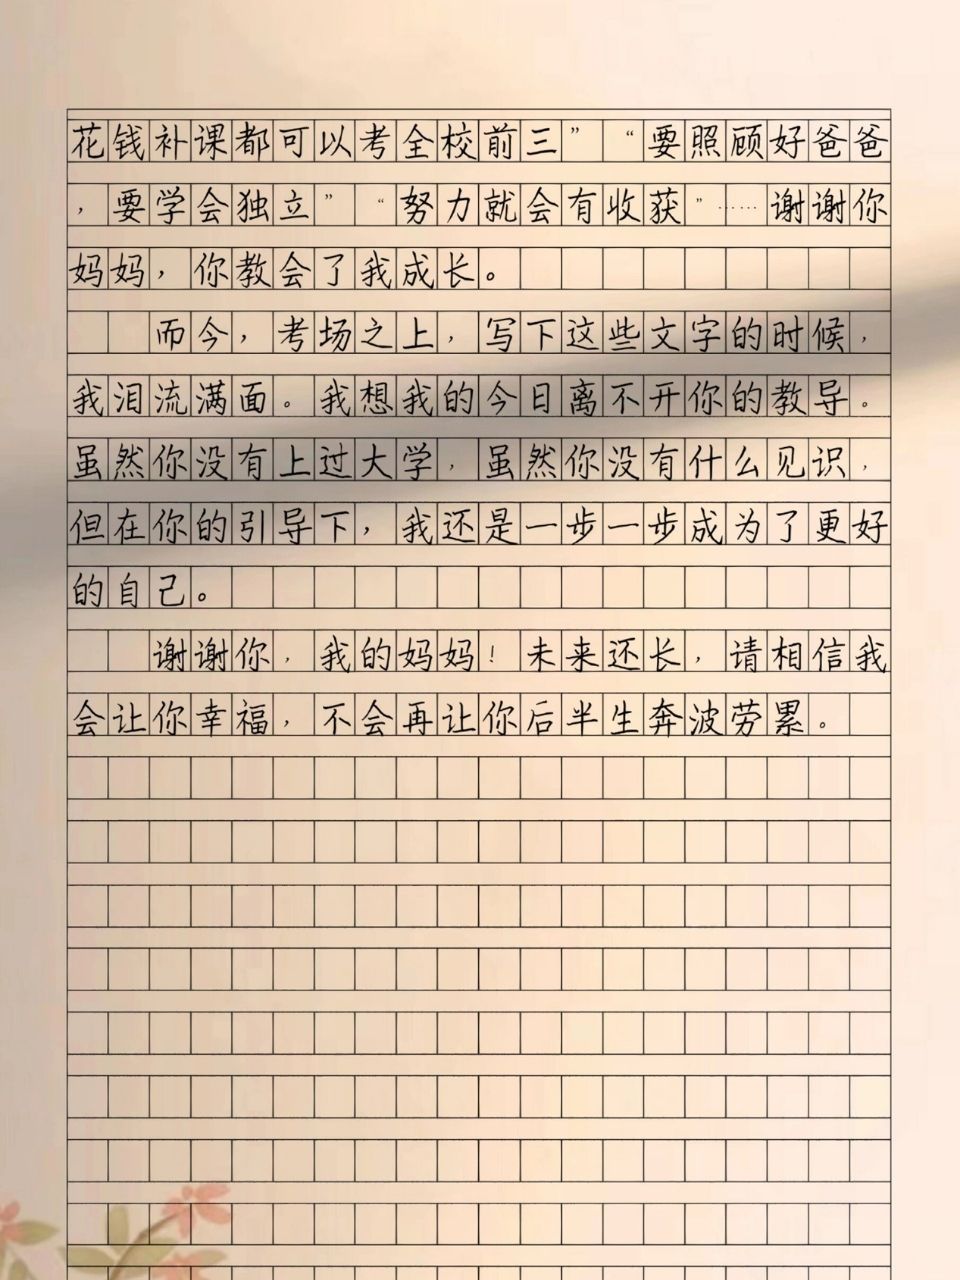 花钱补课都可以考全校前三”“要照顾好爸爸
，要学会独立”“努力就会有收获”……谢谢你
妈妈，你教会了我成长。
而今，考场之上，写下这些文字的时候，
我泪流满面。我想我的今日离不开你的教导。
虽然你没有上过大学，虽然你没有什么见识，
但在你的引导下，我还是一步一步成为了更好
的自己。
谢谢你，我的妈妈！未来还长，请相信我
会让你幸福，不会再让你后半生奔波劳累。